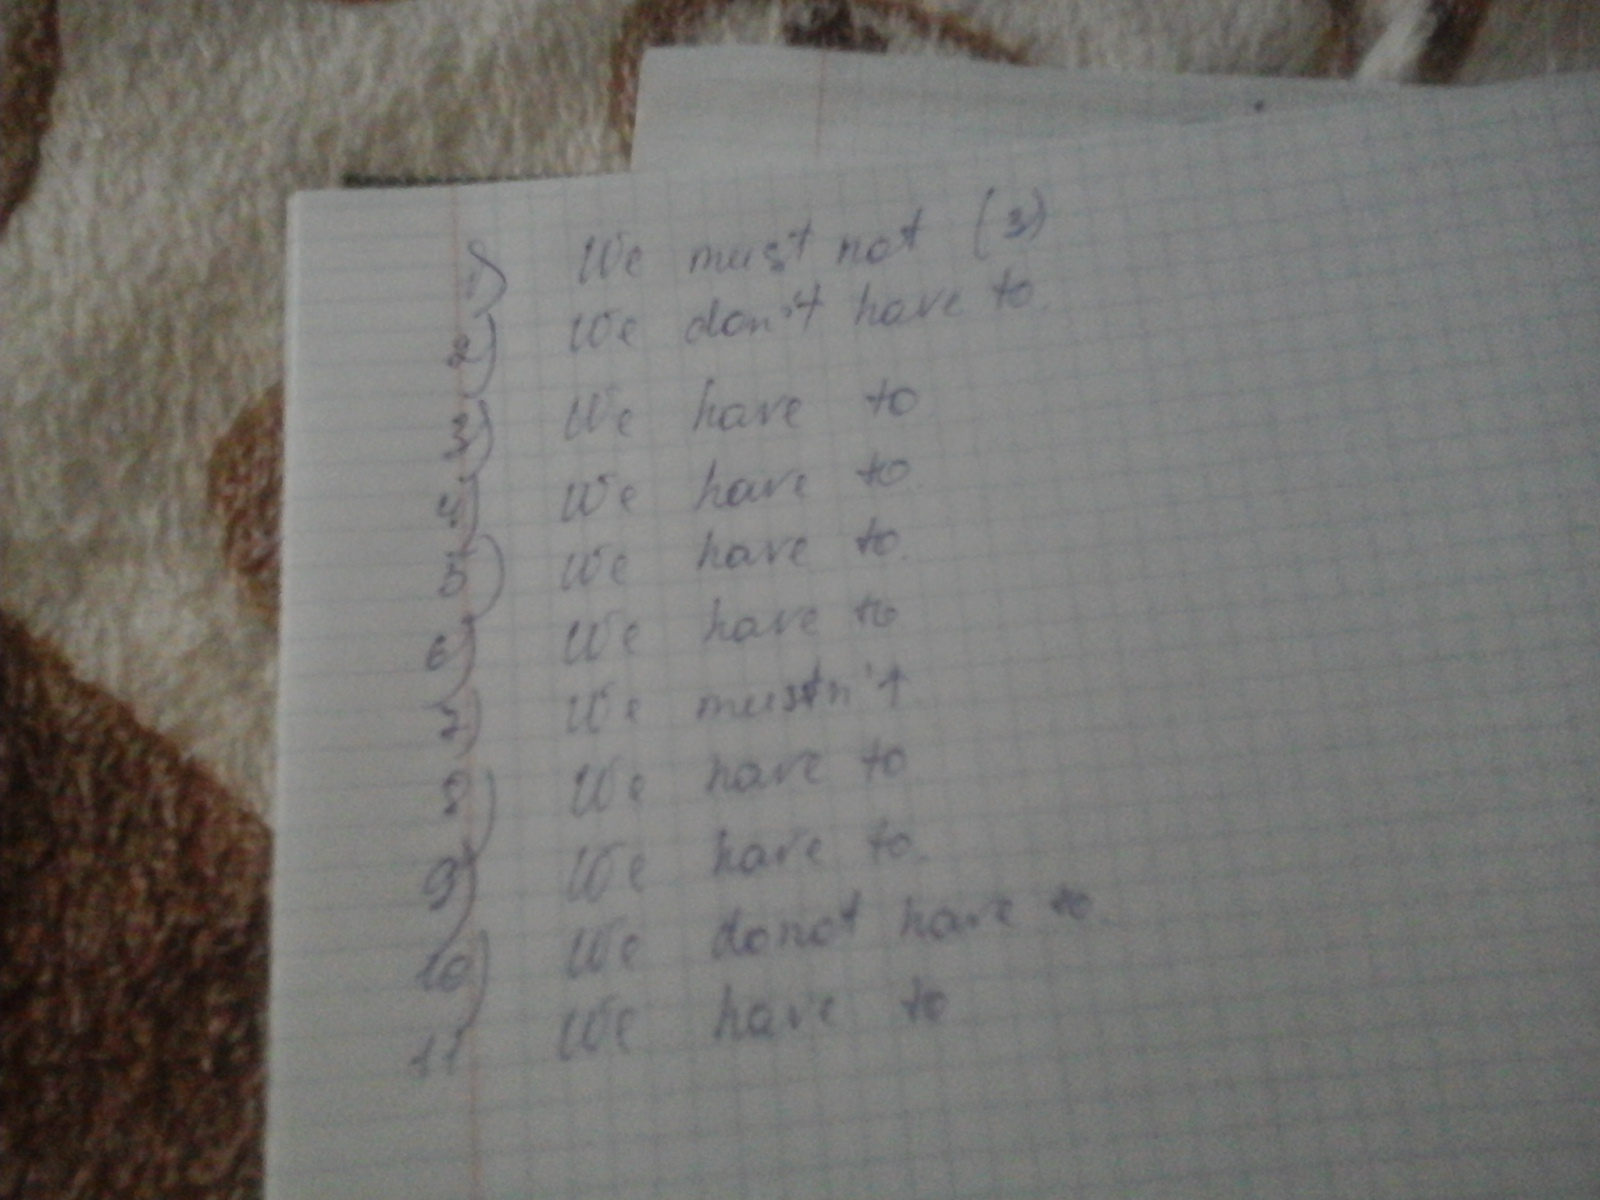 1) We must not (3)
2) We don't have to.
3) We have to
4) We have to
5) We have to.
6) We have to
7) We mustn't.
8) We have to
9) We have to.
10) We donot have to.
11 We have to